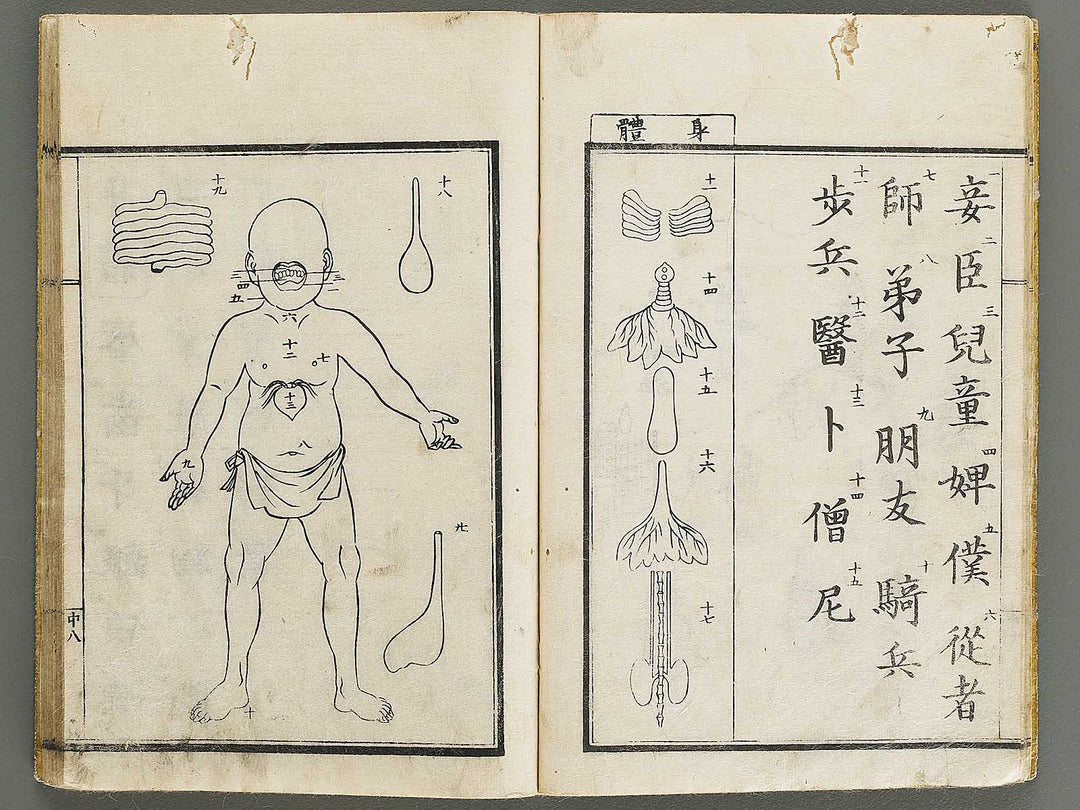 一妾二臣三兒童四婢五僕六從者
七師八弟子九朋友十騎兵
十一歩兵十二醫十三卜十四僧十五尼
身體
十一
十四
十五
十六
十七
十八
十九
三
四
五
六
七
十二
十三
八
九
十
中八